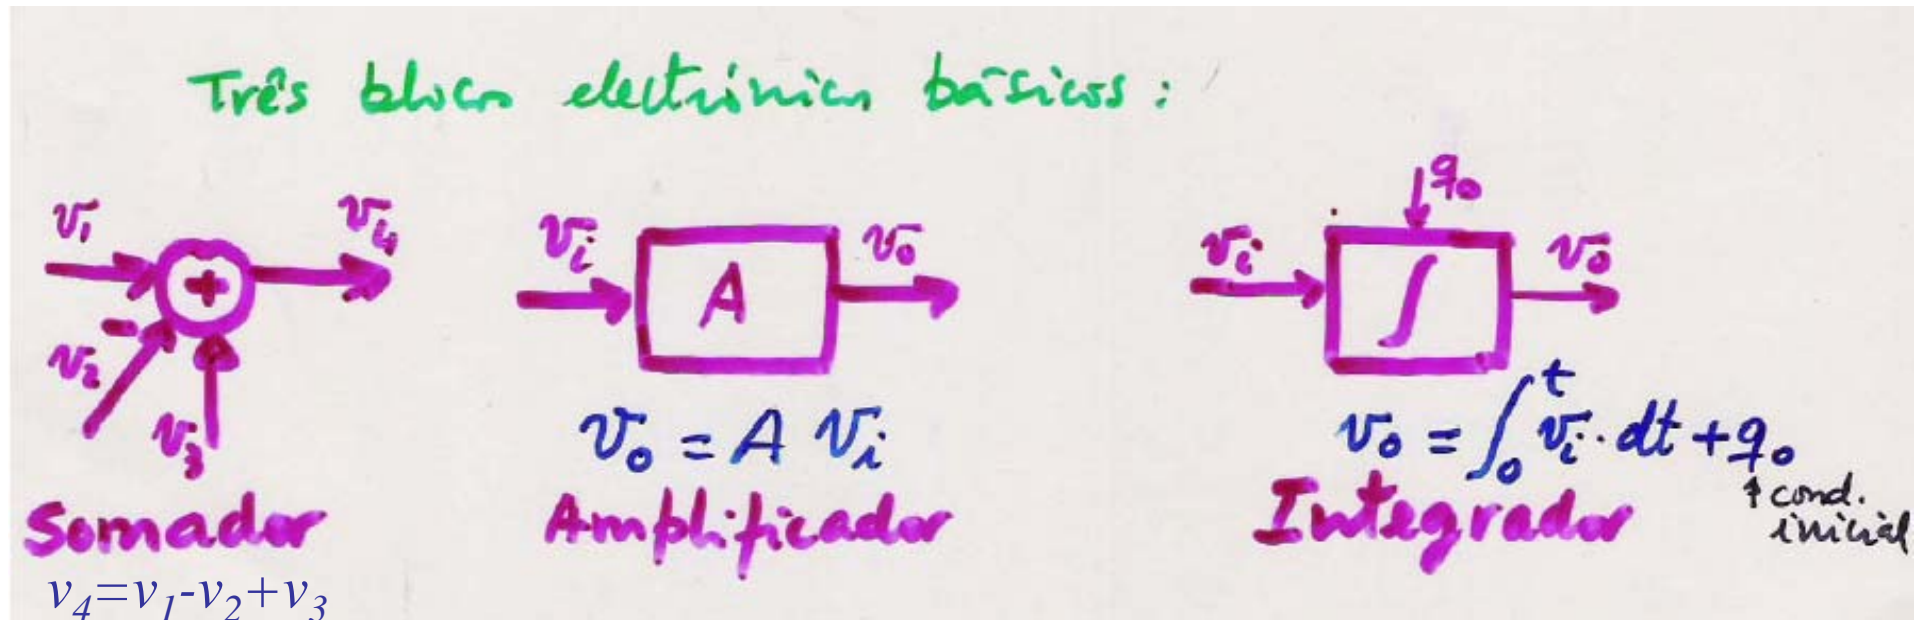 Três blocos electrónicos básicos:
v₁
v₂
-
v₃
+
v₄
Somador
v₄=v₁-v₂+v₃
vᵢ
A
v₀
v₀ = A vᵢ
Amplificador
q₀
vᵢ
∫
v₀
v₀ = ∫₀ᵗ vᵢ · dt + q₀
↑ cond.
inicial
Integrador